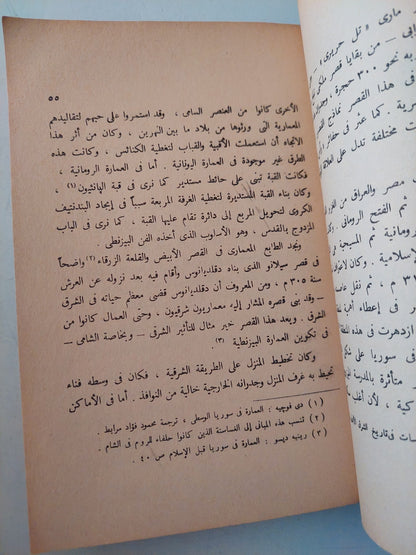 ٥٥
الأخرى كانوا من العنصر السامى ، وقد استمروا على حبهم لتقاليدهم
المعمارية التى ورثوها من بلاد ما بين النهرين ، وكان من أثر هذا
الاتجاه أن استعملت الأقبية والقباب لتغطية الكنائس ، وكانت هذه
الطرق غير موجودة فى العمارة اليونانية . أما فى العمارة الرومانية ،
فكانت القبة تبنى على حائط مستدير كما نرى فى قبة البانثيون (١) ،
وكان بناء القبة المستديرة لتغطية الغرفة المربعة سبباً فى إيجاد البندنتيف
الكروى لتحويل المربع إلى دائرة تقام عليها القبة ، كما نرى فى الباب
المزدوج بالقدس ، وهو الأسلوب الذى أخذه الفن البيزنطى .
ويجد الطابع المعمارى فى القصر الأبيض والقلعة الزرقاء (٢) واضحاً
فى قصر سبالاتو الذى بناه دقلديانوس وأقام فيه بعد نزوله عن العرش
سنة ٣٠٥ م ، ومن المعروف أن دقلديانوس قضى معظم حياته فى الشرق
– وقد بنى قصره المشار إليه معماريون شرقيون . وحتى العمال كانوا من
الشرق . ويعد هذا القصر خير مثال للتأثير الشرقى – وبخاصة الشامى –
فى تكوين العمارة البيزنطية (٣)
وكان تخطيط المنزل على الطريقة الشرقية ، فكان فى وسطه فناء
تحيط به غرف المنزل وجدرانه الخارجية خالية من النوافذ . أما فى الأماكن
(١) دى فوجيه : العمارة فى سوريا الوسطى ، ترجمة محمود فؤاد مرابط .
(٢) تنسب هذه المبانى إلى الغساسنة الذين كانوا حلفاء للروم فى الشام .
(٣) رينيه ديسو : العمارة فى سوريا قبل الإسلام ص ٤٠ .
مارى « تل حريرى »
– من بقايا قصر ملكى
نحو ٣٠٠ حجرة ،
فى هذا القصر نماذج
كما عثر فى حفائر
مختلفة تدل على
مصر والعراق من
ثم الفتح الرومانى
ثم المسيحية
الإسلامية .
فى إعطاء أهمية
ازدهرت فى هذه
فى سوريا على
متأثرة بالمدرسة
لأن أغلب
فى تاريخ الشرق